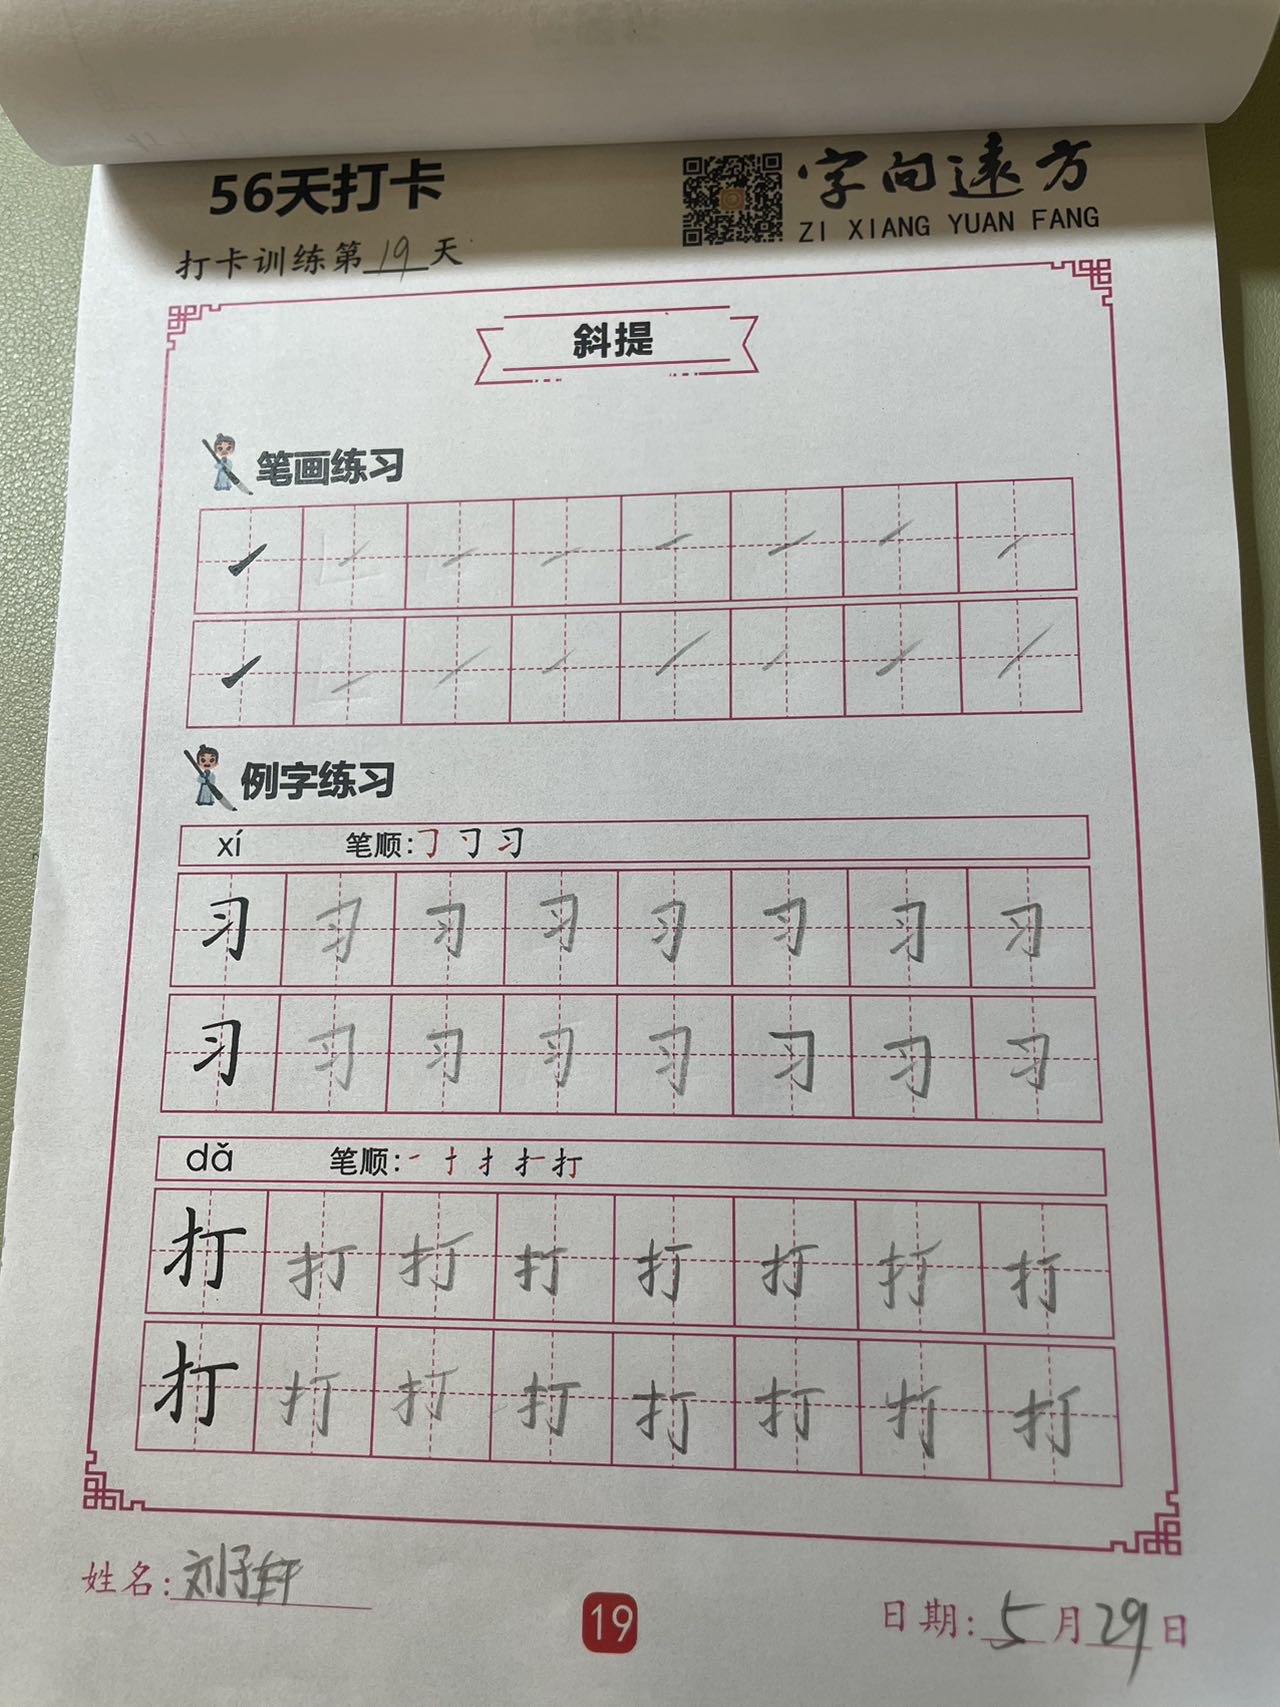 56天打卡
字向遠方
ZI XIANG YUAN FANG
打卡训练第19天
斜提
笔画练习
例字练习
xí 笔顺:
习 习 习 习 习 习 习 习
习 习 习 习 习 习 习 习
dǎ 笔顺: 一 十 扌 扌 打
打 打 打 打 打 打 打 打
打 打 打 打 打 打 打 打
姓名:刘子轩
19
日期:5月29日